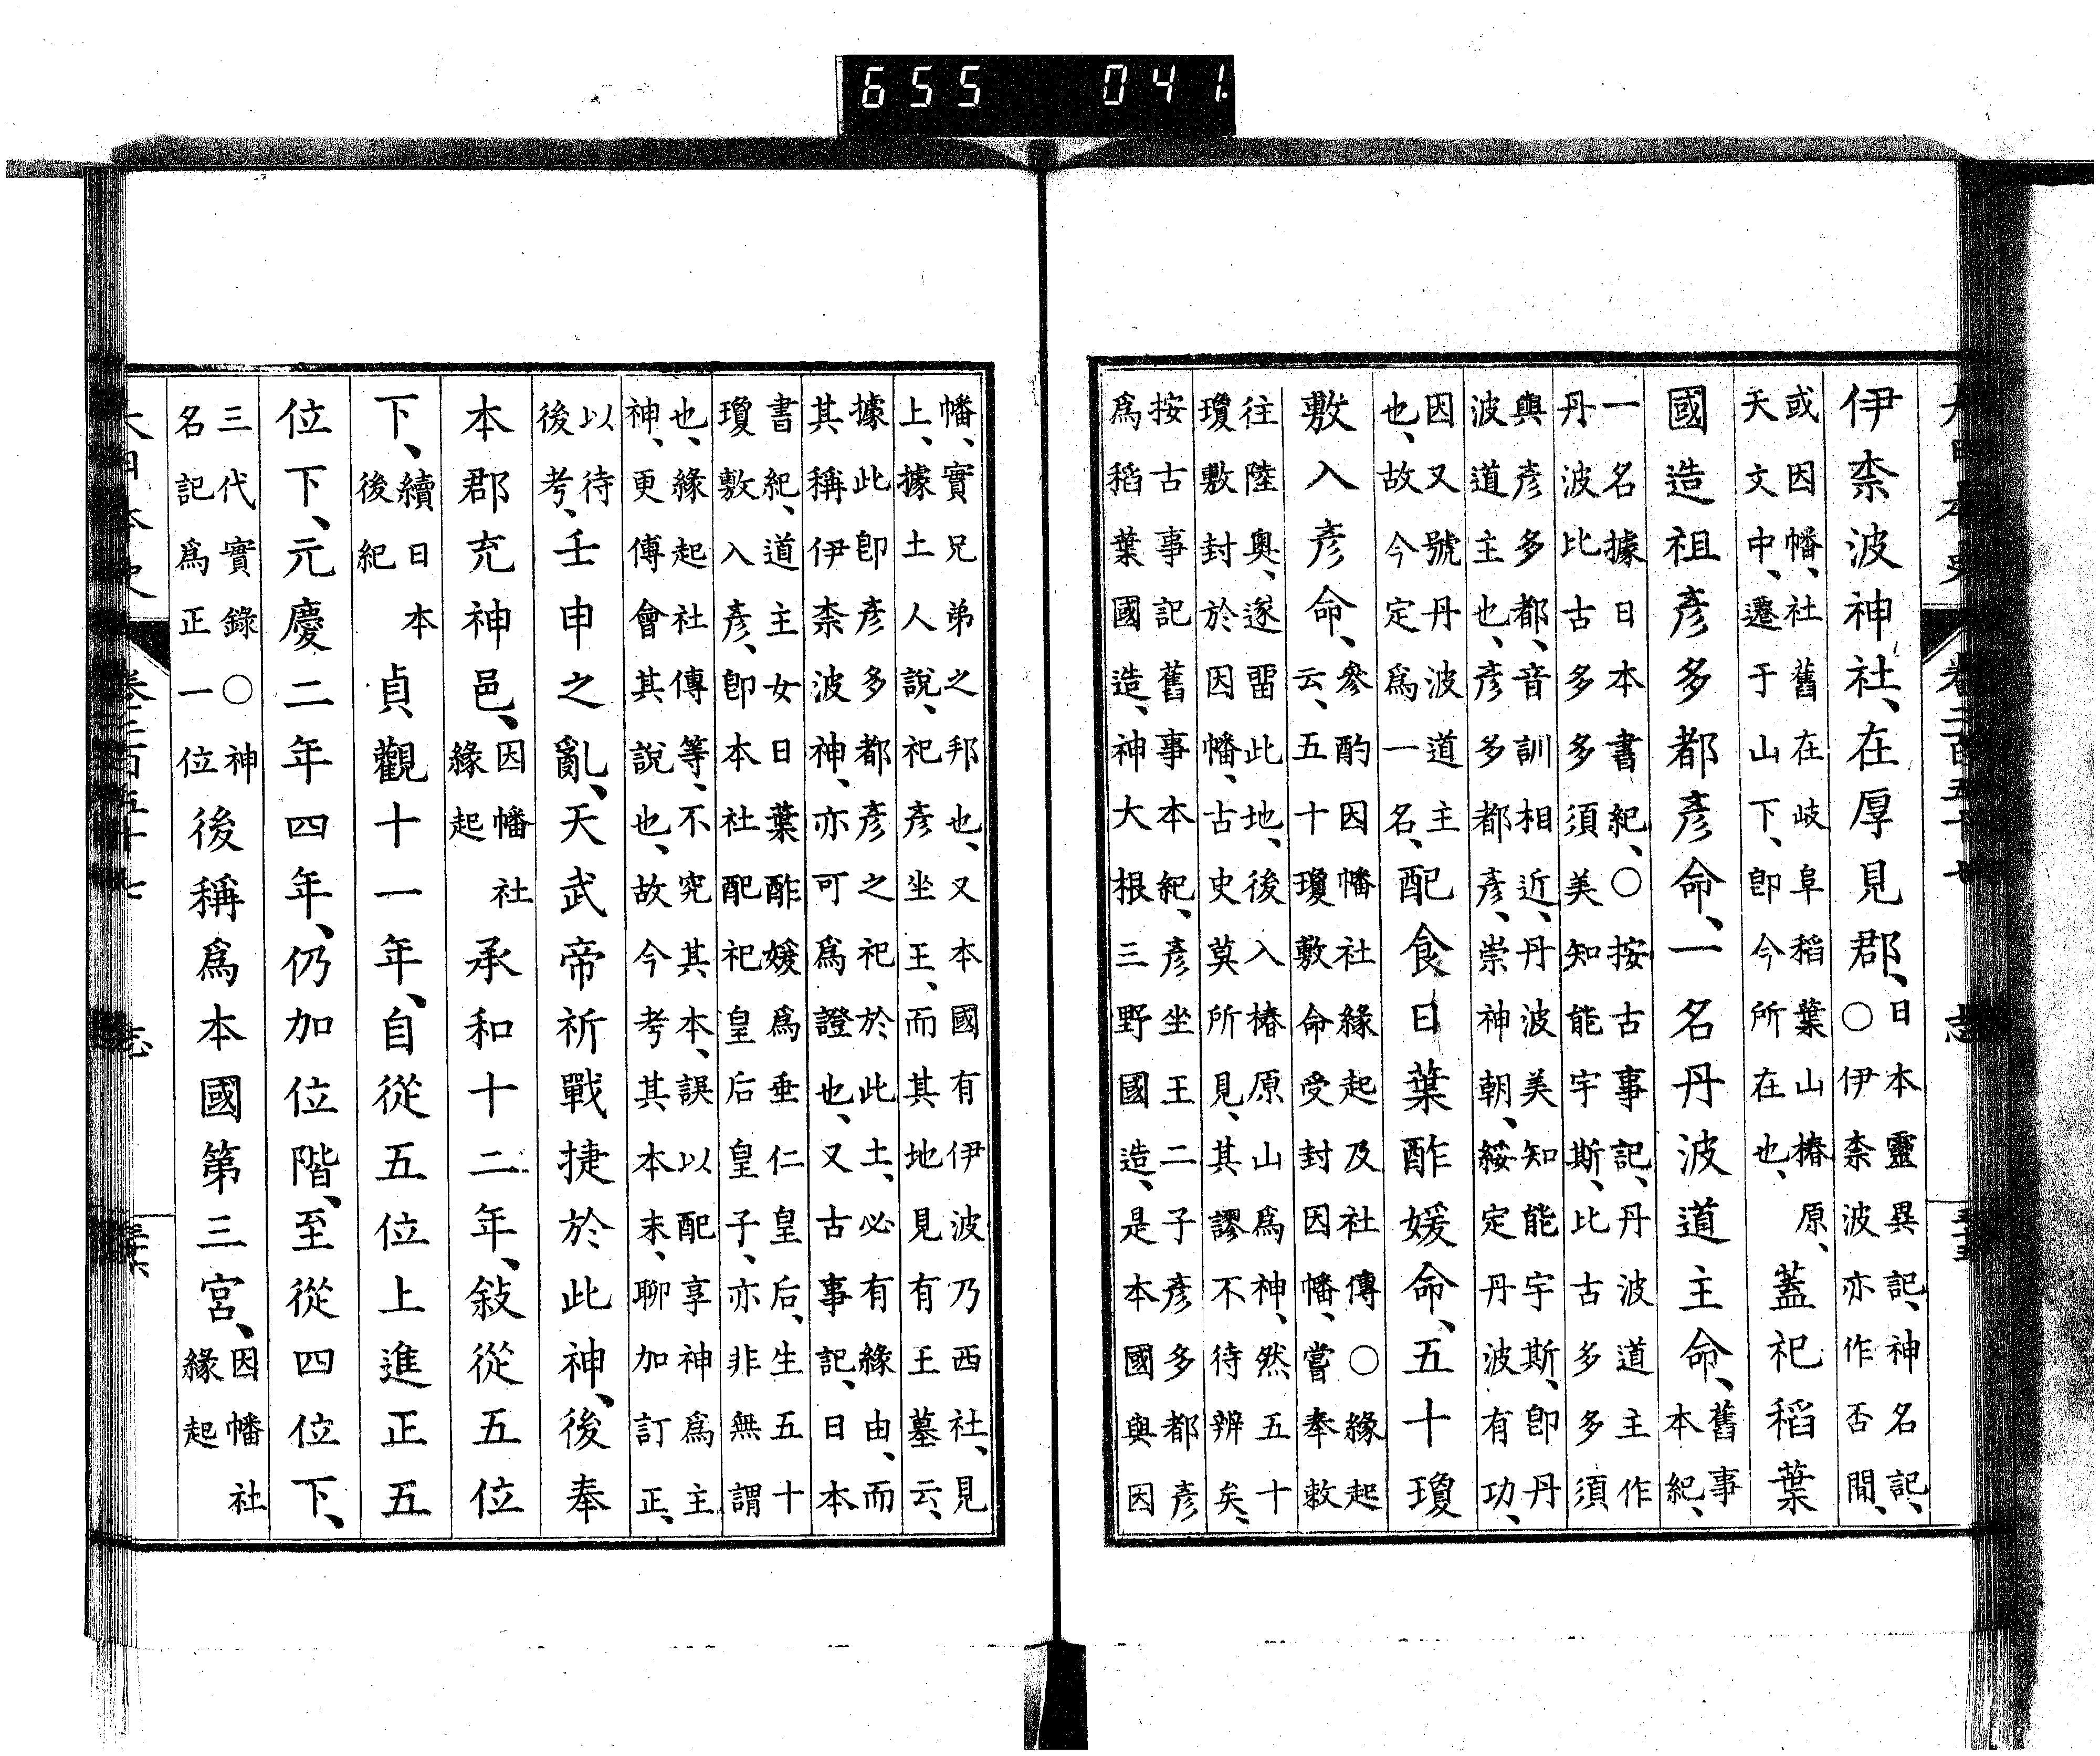 大日本史 卷二百五十七 志 三十五
伊柰波神社、在厚見郡、日本靈異記、神名記、○伊柰波亦作否間、
或因幡、社舊在岐阜稻葉山椿原、天文中、遷于山下、卽今所在也、蓋祀稻葉
國造祖彥多都彥命、一名丹波道主命、舊事本紀、
一名據日本書紀、○按古事記、丹波道主作丹波比古多多須美知能宇斯、比古多多須
與彥多都、音訓相近、丹波美知能宇斯、卽丹波道主也、彥多都彥、崇神朝、綏定丹波有功、
因又號丹波道主也、故今定爲一名、配食日葉酢媛命、五十瓊
敷入彥命、參酌因幡社緣起及社傳○緣起云、五十瓊敷命受封因幡、嘗奉敕
往陸奧、遂畱此地、後入椿原山爲神、然五十瓊敷封於因幡、古史莫所見、其謬不待辨矣、
按古事記舊事本紀、彥坐王二子彥多都彥爲稻葉國造、神大根三野國造、是本國與因
幡、實兄弟之邦也、又本國有伊波乃西社、見上、據土人說、祀彥坐王、而其地見有王墓云、
據此卽彥多都彥之祀於此土、必有緣由、而其稱伊柰波神、亦可爲證也、又古事記、日本
書紀、道主女日葉酢媛爲垂仁皇后、生五十瓊敷入彥、卽本社配祀皇后皇子、亦非無謂
也、緣起社傳等、不究其本、誤以配享神爲主神、更傳會其說也、故今考其本末、聊加訂正、
以待後考、壬申之亂、天武帝祈戰捷於此神、後奉
本郡充神邑、因幡社緣起承和十二年、敍從五位
下、續日本後紀貞觀十一年、自從五位上進正五
位下、元慶二年四年、仍加位階、至從四位下、
三代實錄○神名記爲正一位後稱爲本國第三宮、因幡社緣起
大日本史 卷二百五十七 志 三十六